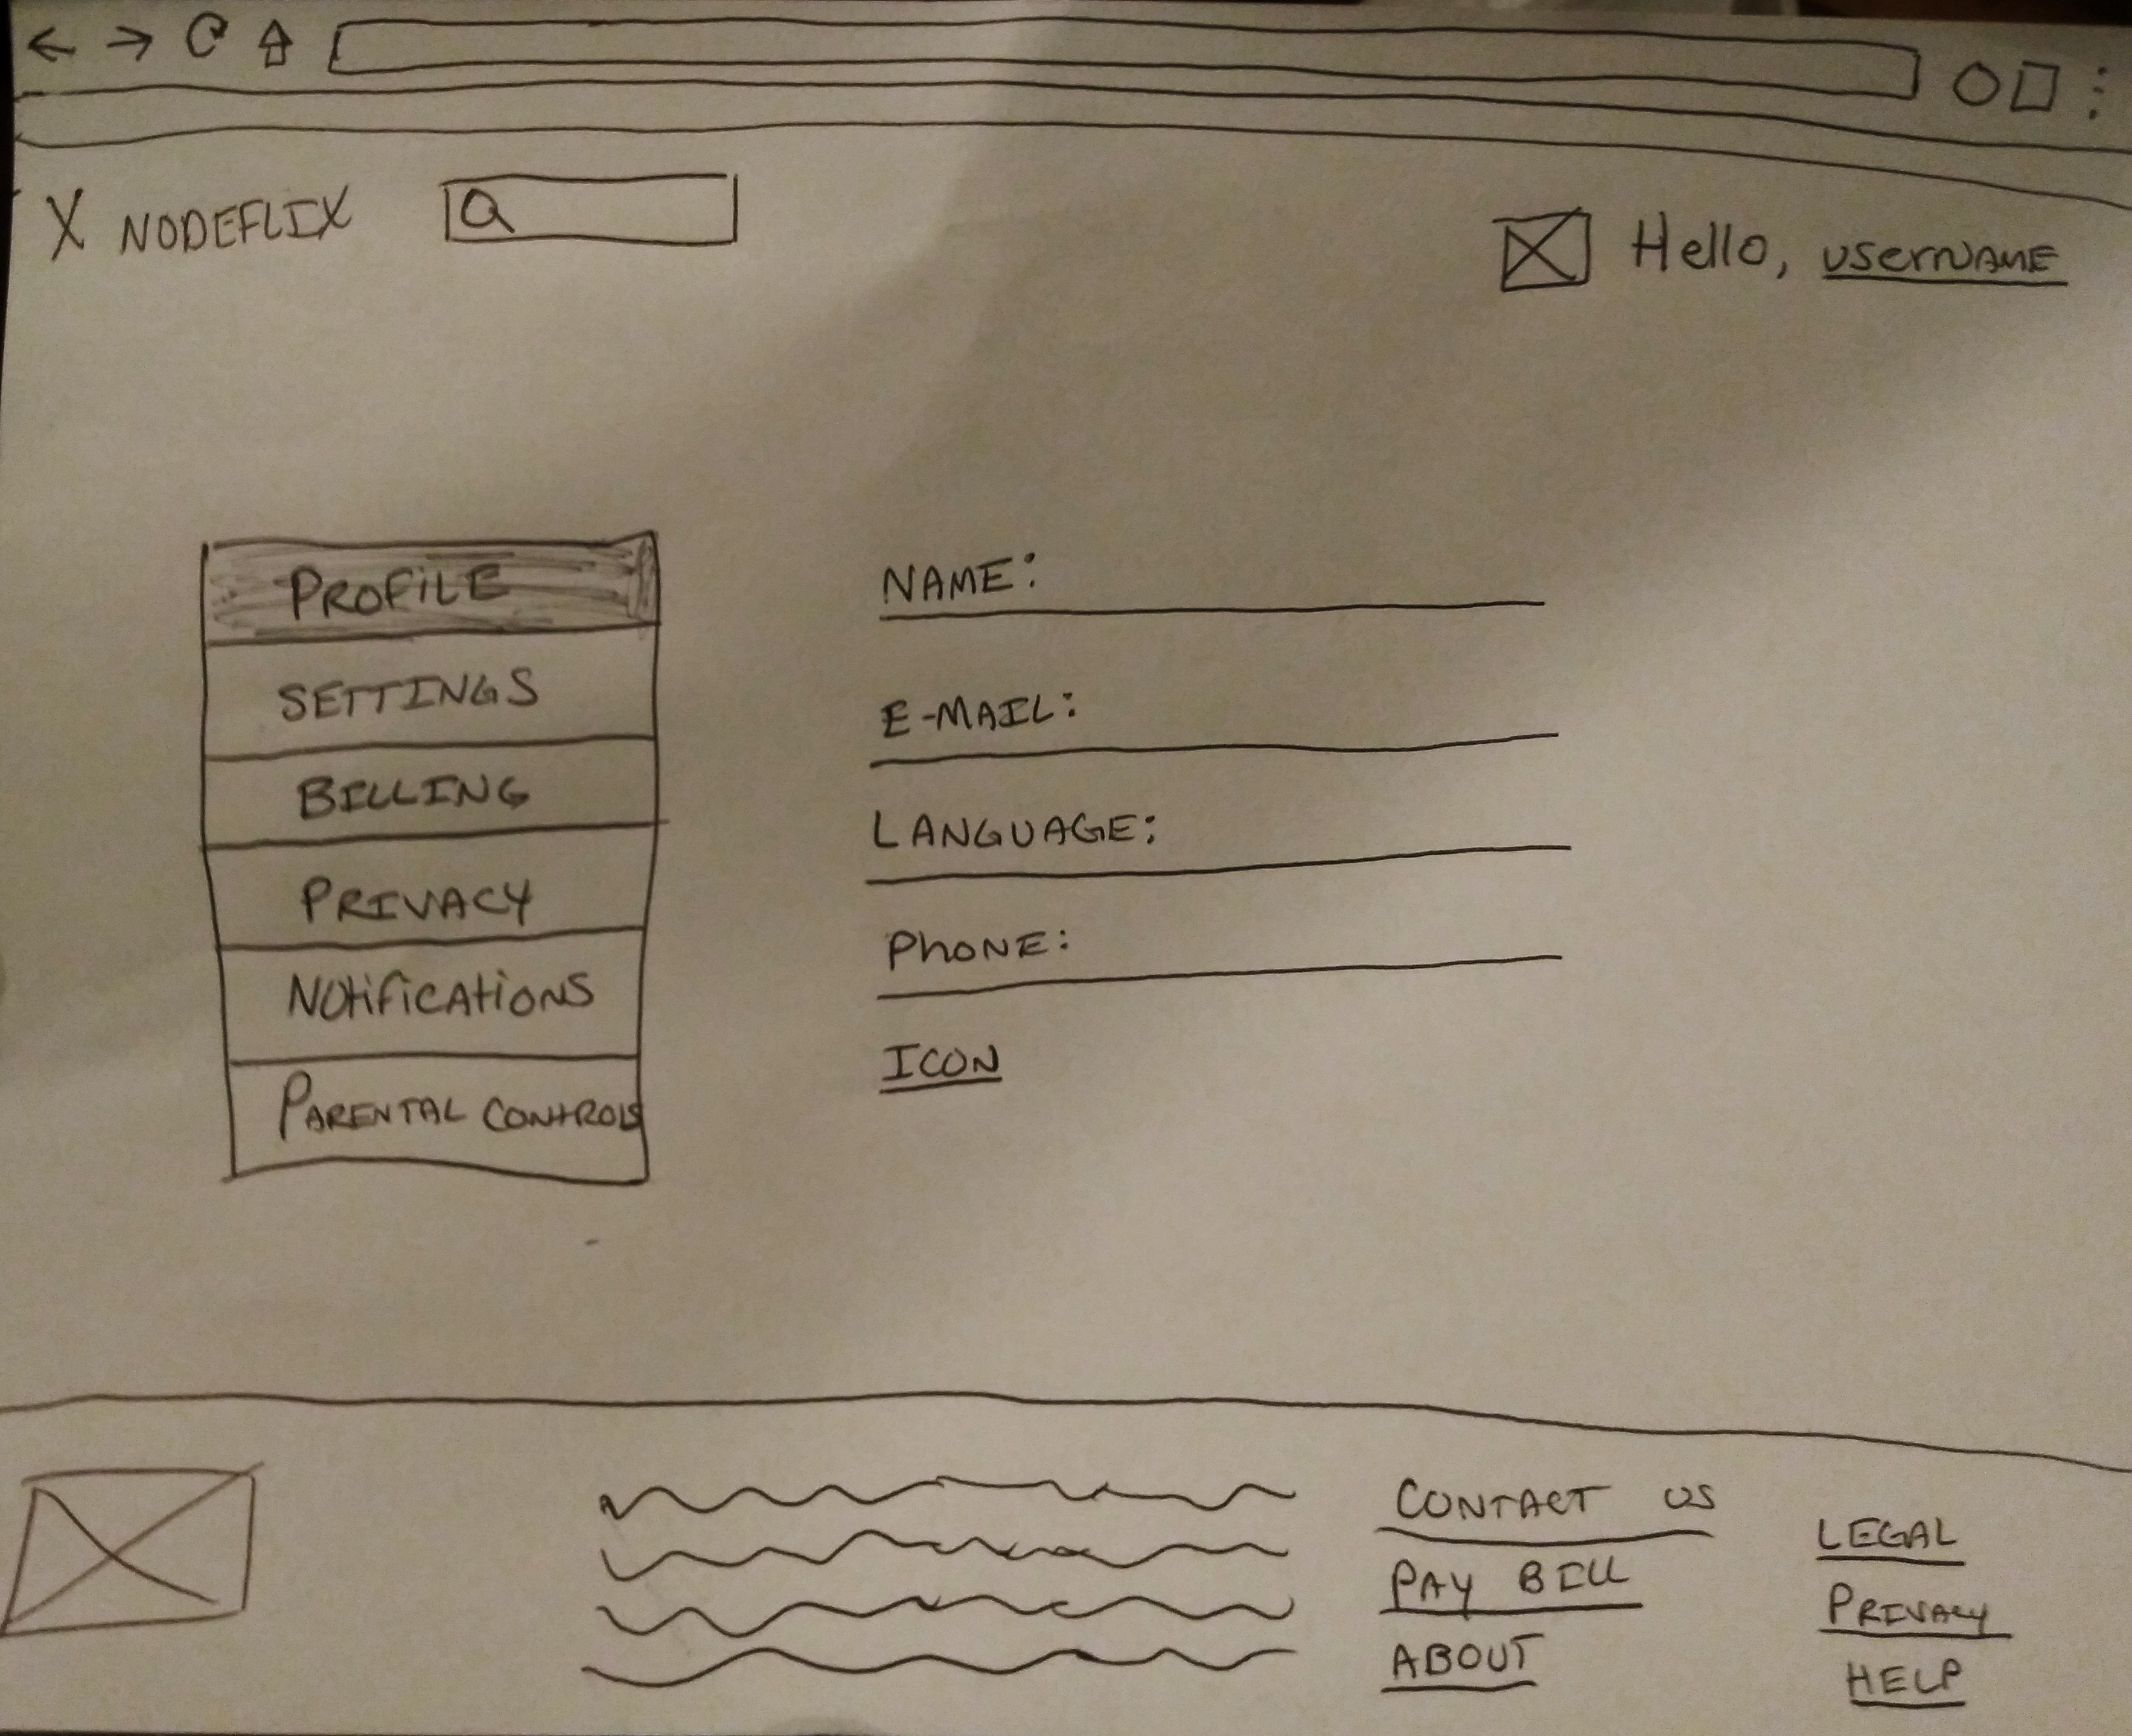 X NODEFLIX
Hello, username
PROFILE
SETTINGS
BILLING
PRIVACY
Notifications
PARENTAL CONTROLS
NAME:
E-MAIL:
LANGUAGE:
PhONE:
ICON
CONTACT US
PAY BILL
ABOUT
LEGAL
PRIVACY
HELP